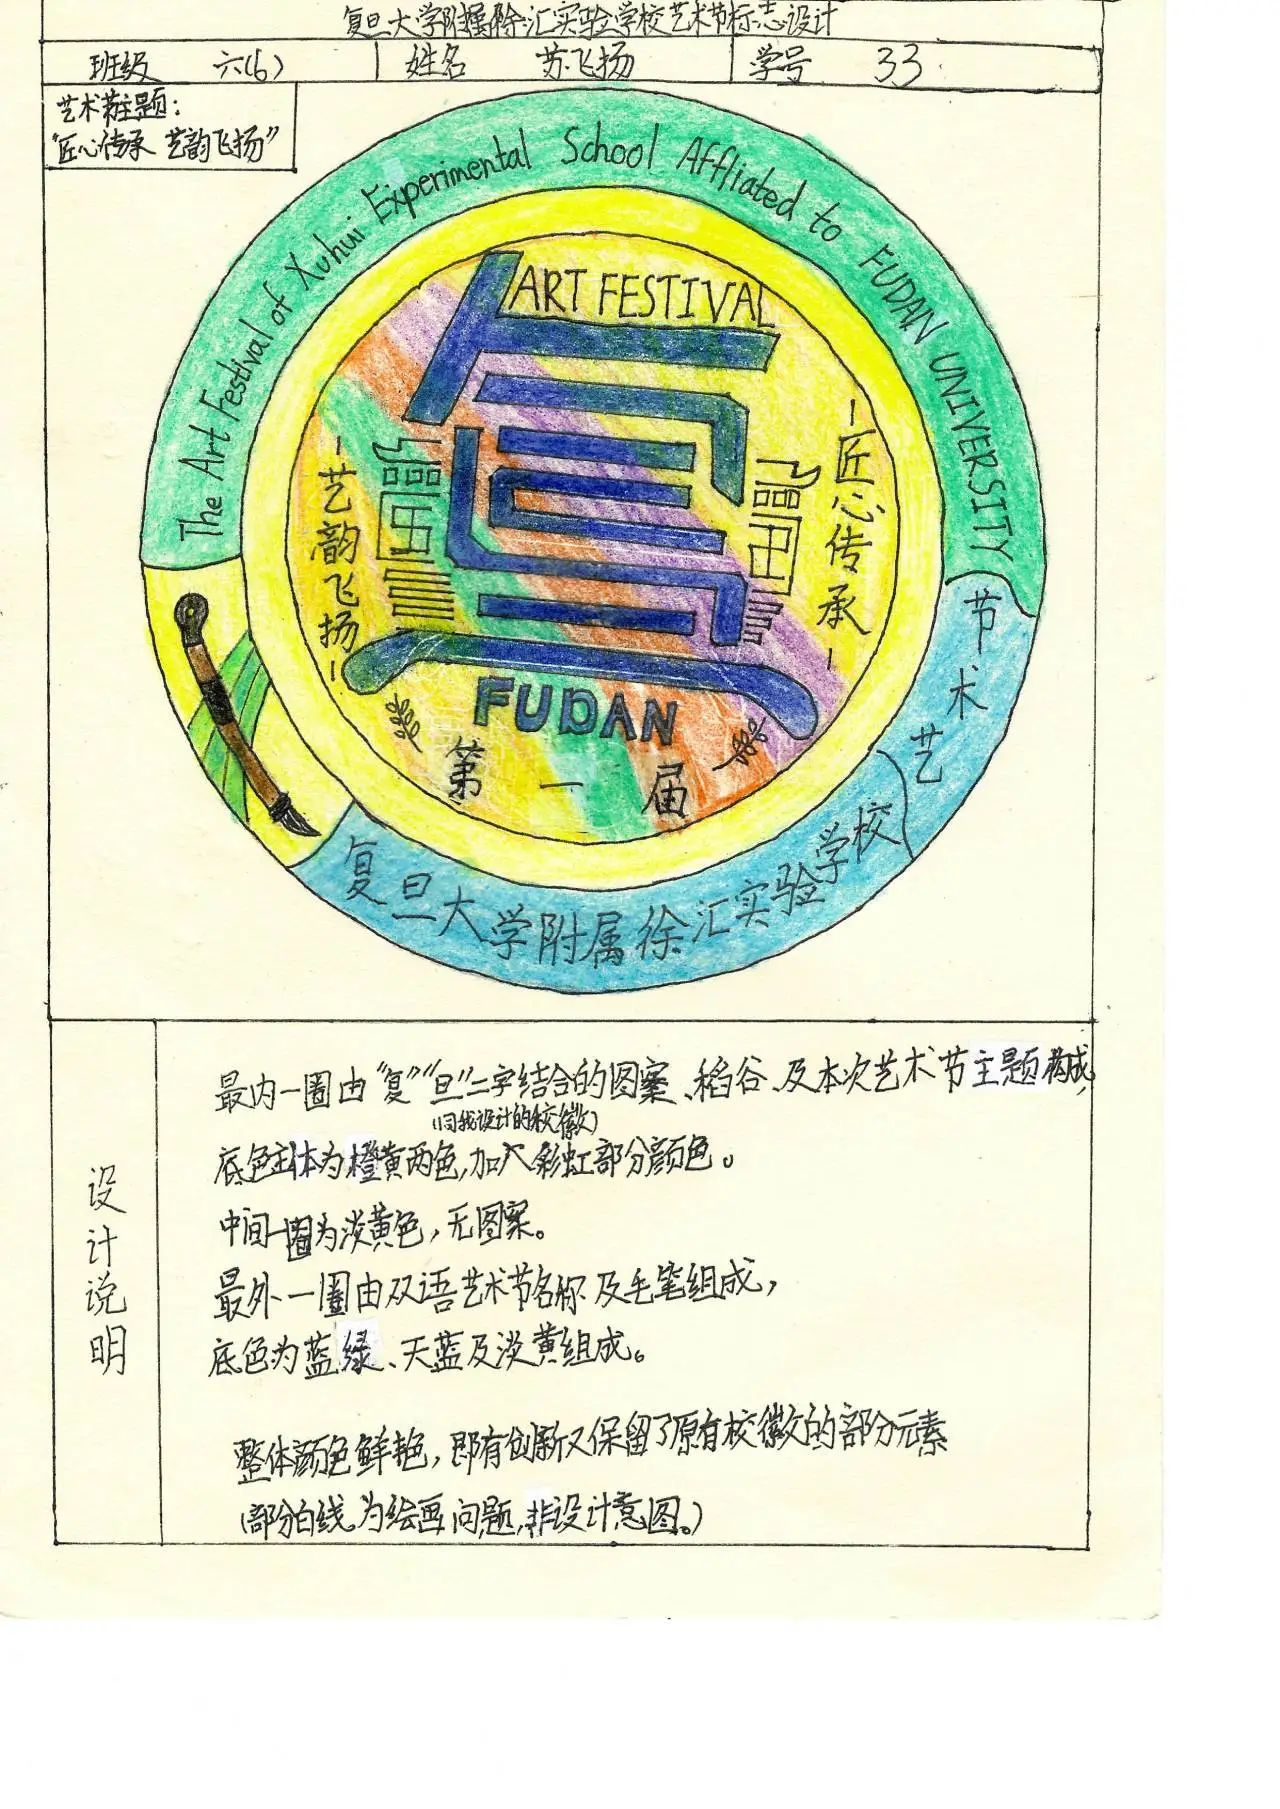 复旦大学附属徐汇实验学校艺术节标志设计
班级 六(6) 姓名 苏飞扬 学号 33
艺术节主题：
“匠心传承 艺韵飞扬”
The Art Festival of Xuhui Experimental School Affliated to FUDAN UNIVERSITY
ART FESTIVAL
-艺韵飞扬-
-匠心传承-
FUDAN
第一届
复旦大学附属徐汇实验学校
艺术节
设计说明
最内一圈由“复”“旦”二字结合的图案、稻谷、及本次艺术节主题构成,
(同我设计的校徽)
底色主体为橙黄两色,加入彩虹部分颜色。
中间一圈为淡黄色，无图案。
最外一圈由双语艺术节名称及毛笔组成，
底色为蓝绿、天蓝及淡黄组成。
整体颜色鲜艳，即有创新又保留了原有校徽的部分元素
(部分白线为绘画问题,非设计意图。)